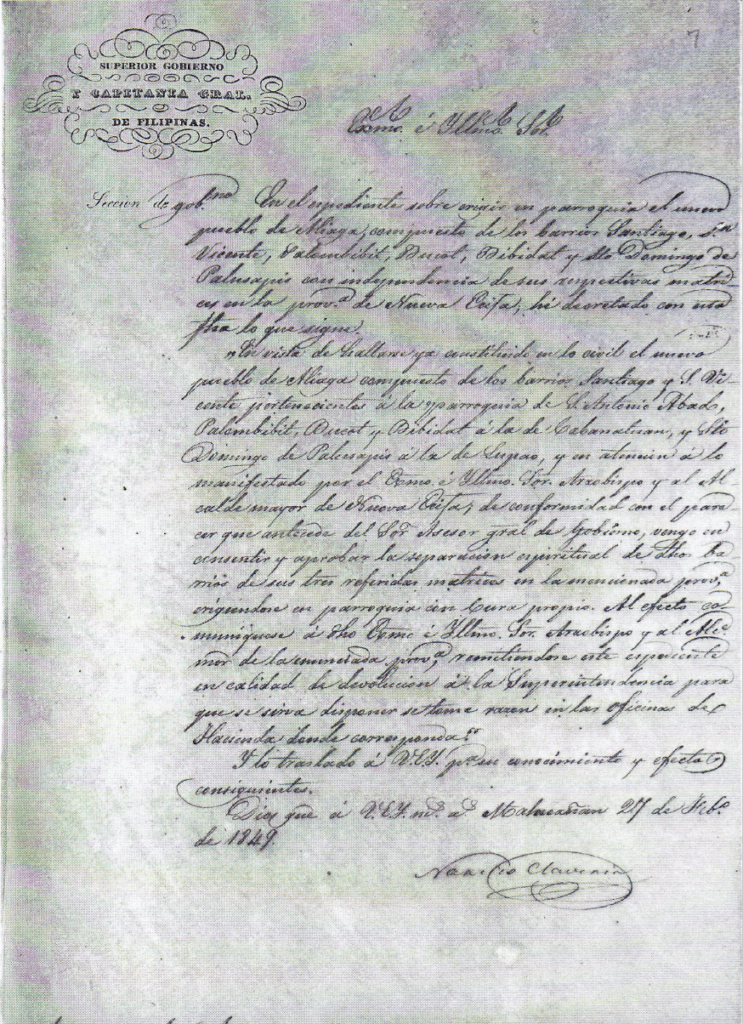 7
SUPERIOR GOBIERNO
Y CAPITANIA GRAL.
DE FILIPINAS.
Exmo. é Yllmo. Sor.
Seccion de gobno
En el espediente sobre erigir en parroquia el nuevo
pueblo de Aliaga, compuesto de los barrios Santiago, Sn
Vicente, Palembibit, Bucot, Bibidat y Sto Domingo de
Palusapis con independencia de sus respectivas matri-
ces en la prova de Nueva Ecija, hé decretado con esta
fha lo que sigue.
"En vista de hallarse ya constituido en lo civil el nuevo
pueblo de Aliaga compuesto de los barrios Santiago y S. Vi-
cente pertenecientes á la parroquia de S. Antonio Abad,
Palembibit, Bucot y Bibidat á la de Cabanatuan, y Sto
Domingo de Palusapis á la de Lupao, y en atencion á lo
manifestado por el Exmo. é Yllmo. Sor. Arzobispo y al Al-
calde mayor de Nueva Ecija; de conformidad con el pare-
cer que antecede del Sor Asesor gral de Gobierno, vengo en
consentir y aprobar la separacion espiritual de dhos ba-
rrios de sus tres referidas matrices en la mencionada prova,
erigiendose en parroquia con Cura propio. Al efecto co-
muniquese á dho Exmo é Yllmo. Sor. Arzobispo y al Alce.
mor de la enunciada prova, remitiendose este espediente
en calidad de devolucion á la Superintendencia para
que se sirva disponer se tome razon en las oficinas de
Hacienda donde corresponda."
Y lo traslado á V.E.Y. pa su conocimiento y efectos
consiguientes.
Dios gue á V.E.Y. ms. as. Malacañan 27 de Febo.
de 1849.
Narciso Claveria